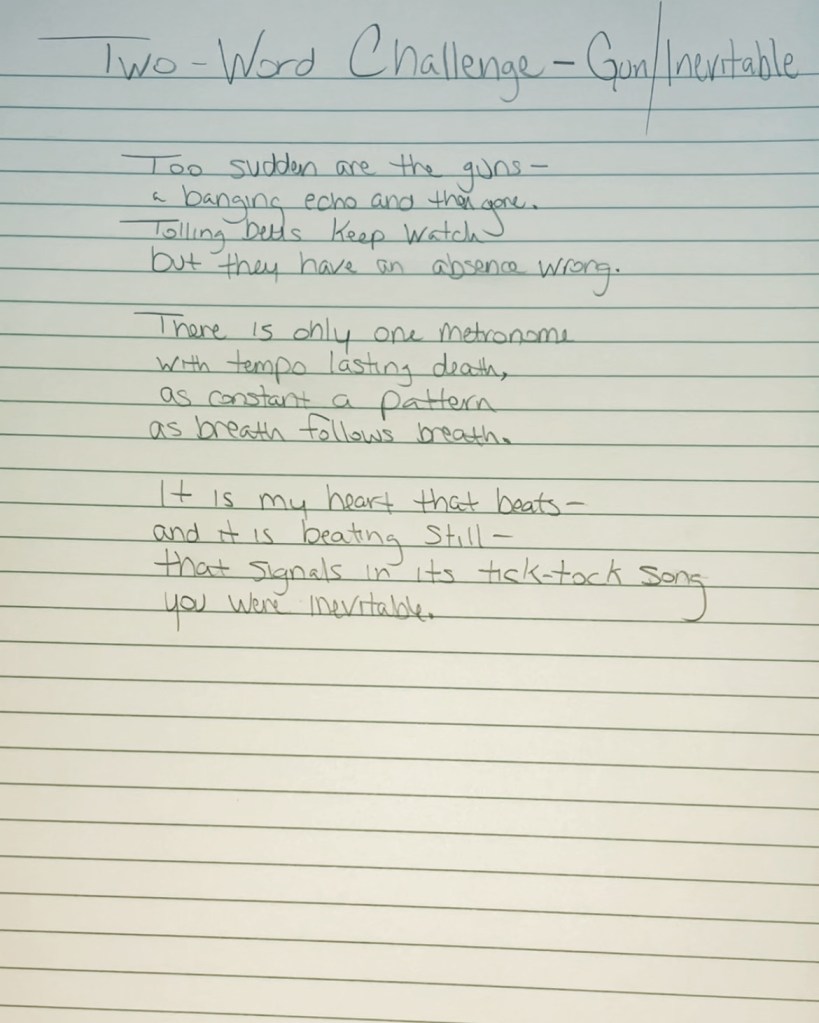 Two-Word Challenge - Gun/Inevitable
Too sudden are the guns-
a banging echo and then gone.
Tolling bells keep watch
but they have an absence wrong.
There is only one metronome
with tempo lasting death,
as constant a pattern
as breath follows breath.
It is my heart that beats-
and it is beating still-
that signals in its tick-tock song
you were inevitable.